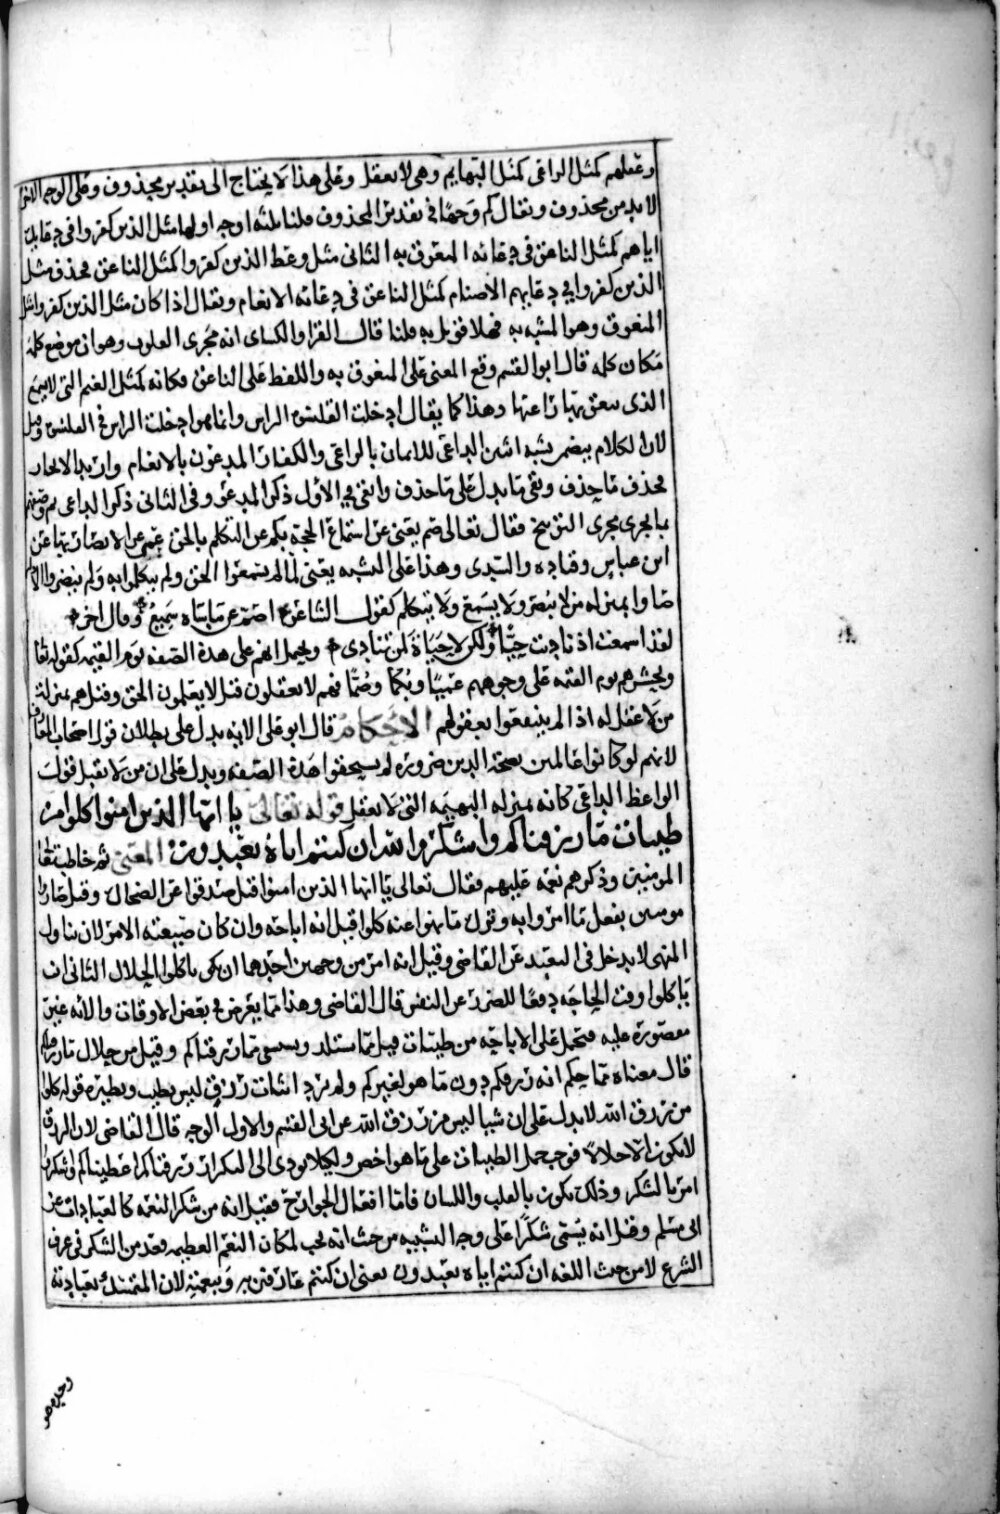 وعقلهم كمثل الراعى كمثل البهايم وهى لا تعقل وعلى هذا لا يحتاج الى تقدير محذوف وعلى الوجه الاخر
لا بد من محذوف ويقال كم وجها فى تقدير المحذوف قلنا ثلثة اوجه اولها مثل الذين كفروا فى دعايك
اياهم كمثل الناعق فى دعائه المنعوق به الثانى مثل وعظ الذين كفروا كمثل الناعق فحذف مثل
الذين كفروا فى دعايهم الاصنام كمثل الناعق فى دعائه الانعام ويقال اذا كان مثل الذين كفروا مثل
المنعوق وهو المشبه به فهلا قوبل به قلنا قال الفرا والكساى انه مجرى المقلوب وهو ان موضع كلمة
مكان كلمه قال ابو القسم وقع المعنى على المنعوق به واللفظ على الناعق فكانه كمثل الغنم التى لا يسمع
الذى ينعق بها راعيها وهذا كما يقال ادخلت القلنسوة الراس وانما هو ادخلت الراس فى القلنسوة وقيل
لان الكلام يتضمن تشبيه اثنين الداعى للايمان بالراعى والكفار المدعون بالانعام واريد الايجاز
فحذف ما حذف وبقى ما يدل على ما حذف وابقى فى الاول ذكر المدعو وفى الثانى ذكر الداعى ثم وصفهم
بما يجرى مجرى التوبيخ فقال تعالى صم يعنى عن استماع الحجة بكم عن التكلم بالحق عمى عن الابصار بها عن
ابن عباس وقتاده والسدى وهذا على التشبيه يعنى لما لم يسمعوا الحق ولم يتكلموا به ولم يبصروا الادلة
صاروا بمنزله من لا يبصر ولا يسمع ولا يتكلم كقول الشاعر اصم عن ما ساه سميع وقال اخر
لقد اسمعت اذ ناديت حيا ولكن لا حياة لمن تنادى ويحتمل انهم على هذه الصفه يوم القيمه كقوله تعالى
ونحشرهم يوم القيمه على وجوههم عميا وبكما وصما فهم لا يعقلون قيل لا يعلمون الحق وقيل هم بمنزلة
من لا عقل له اذا لم ينتفعوا بعقولهم الاحكام قال ابو على الايه تدل على بطلان قول اصحاب المعارف
لانهم لو كانوا عالمين بصحة الدين ضرورة لم يستحقوا هذه الصفه ويدل على ان من لا يقبل قول
الواعظ الداعى كانه بمنزله البهيمه التى لا تعقل قوله تعالى يا ايها الذين امنوا كلوا من
طيبات ما رزقناكم واشكروا لله ان كنتم اياه تعبدون المعنى ثم خاطب تعالى
المومنين وذكرهم نعمه عليهم فقال تعالى يا ايها الذين امنوا قيل صدقوا عن الضحاك وقيل صاروا
مومنين بفعل ما امروا به وترك ما نهوا عنه كلوا قيل انه اباحه وان كان صيغته الامر لان تناول
المنهى لا يدخل فى التعبد عن القاضى وقيل انه امر من وجهين احدهما ان يكون ياكلوا الحلال الثانى ان
ياكلوا وقت الحاجه دفعا للضرر عن النفس قال القاضى وهذا مما يعرض فى بعض الاوقات والايه غير
مقصورة عليه فتحمل على الاباحه من طيبات قيل مما يستلذ ويشتهى مما رزقناكم وقيل من حلال ما رزقناكم
قال معناه مما حكم انه رزقكم دون ما هو لغيركم ولم يرد اثبات رزق ليس بطيب ونظيره قوله كلوا
من رزق الله لا يدل على ان شيا ليس من رزق الله عن ابى القسم والاول الوجه قال القاضى لان الرزق
لا يكون الا حلالا فوجب حمل الطيبات على ما هو اخص ولئلا يودى الى التكرار رزقناكم اعطيناكم واشكروا
امر بالشكر وذلك يكون بالقلب واللسان فاما افعال الجوارح فقيل انه من شكر النعمه كالعبادات عن
ابى مسلم وقيل انه يسمى شكرا على وجه التشبيه من حيث انه تجب لمكان النعم العظيمه فعد من الشكر فى عرف
الشرع لا من حيث اللغه ان كنتم اياه تعبدون يعنى ان كنتم عارفين به وبنعمته لان المتمسك بعبادته
وحده